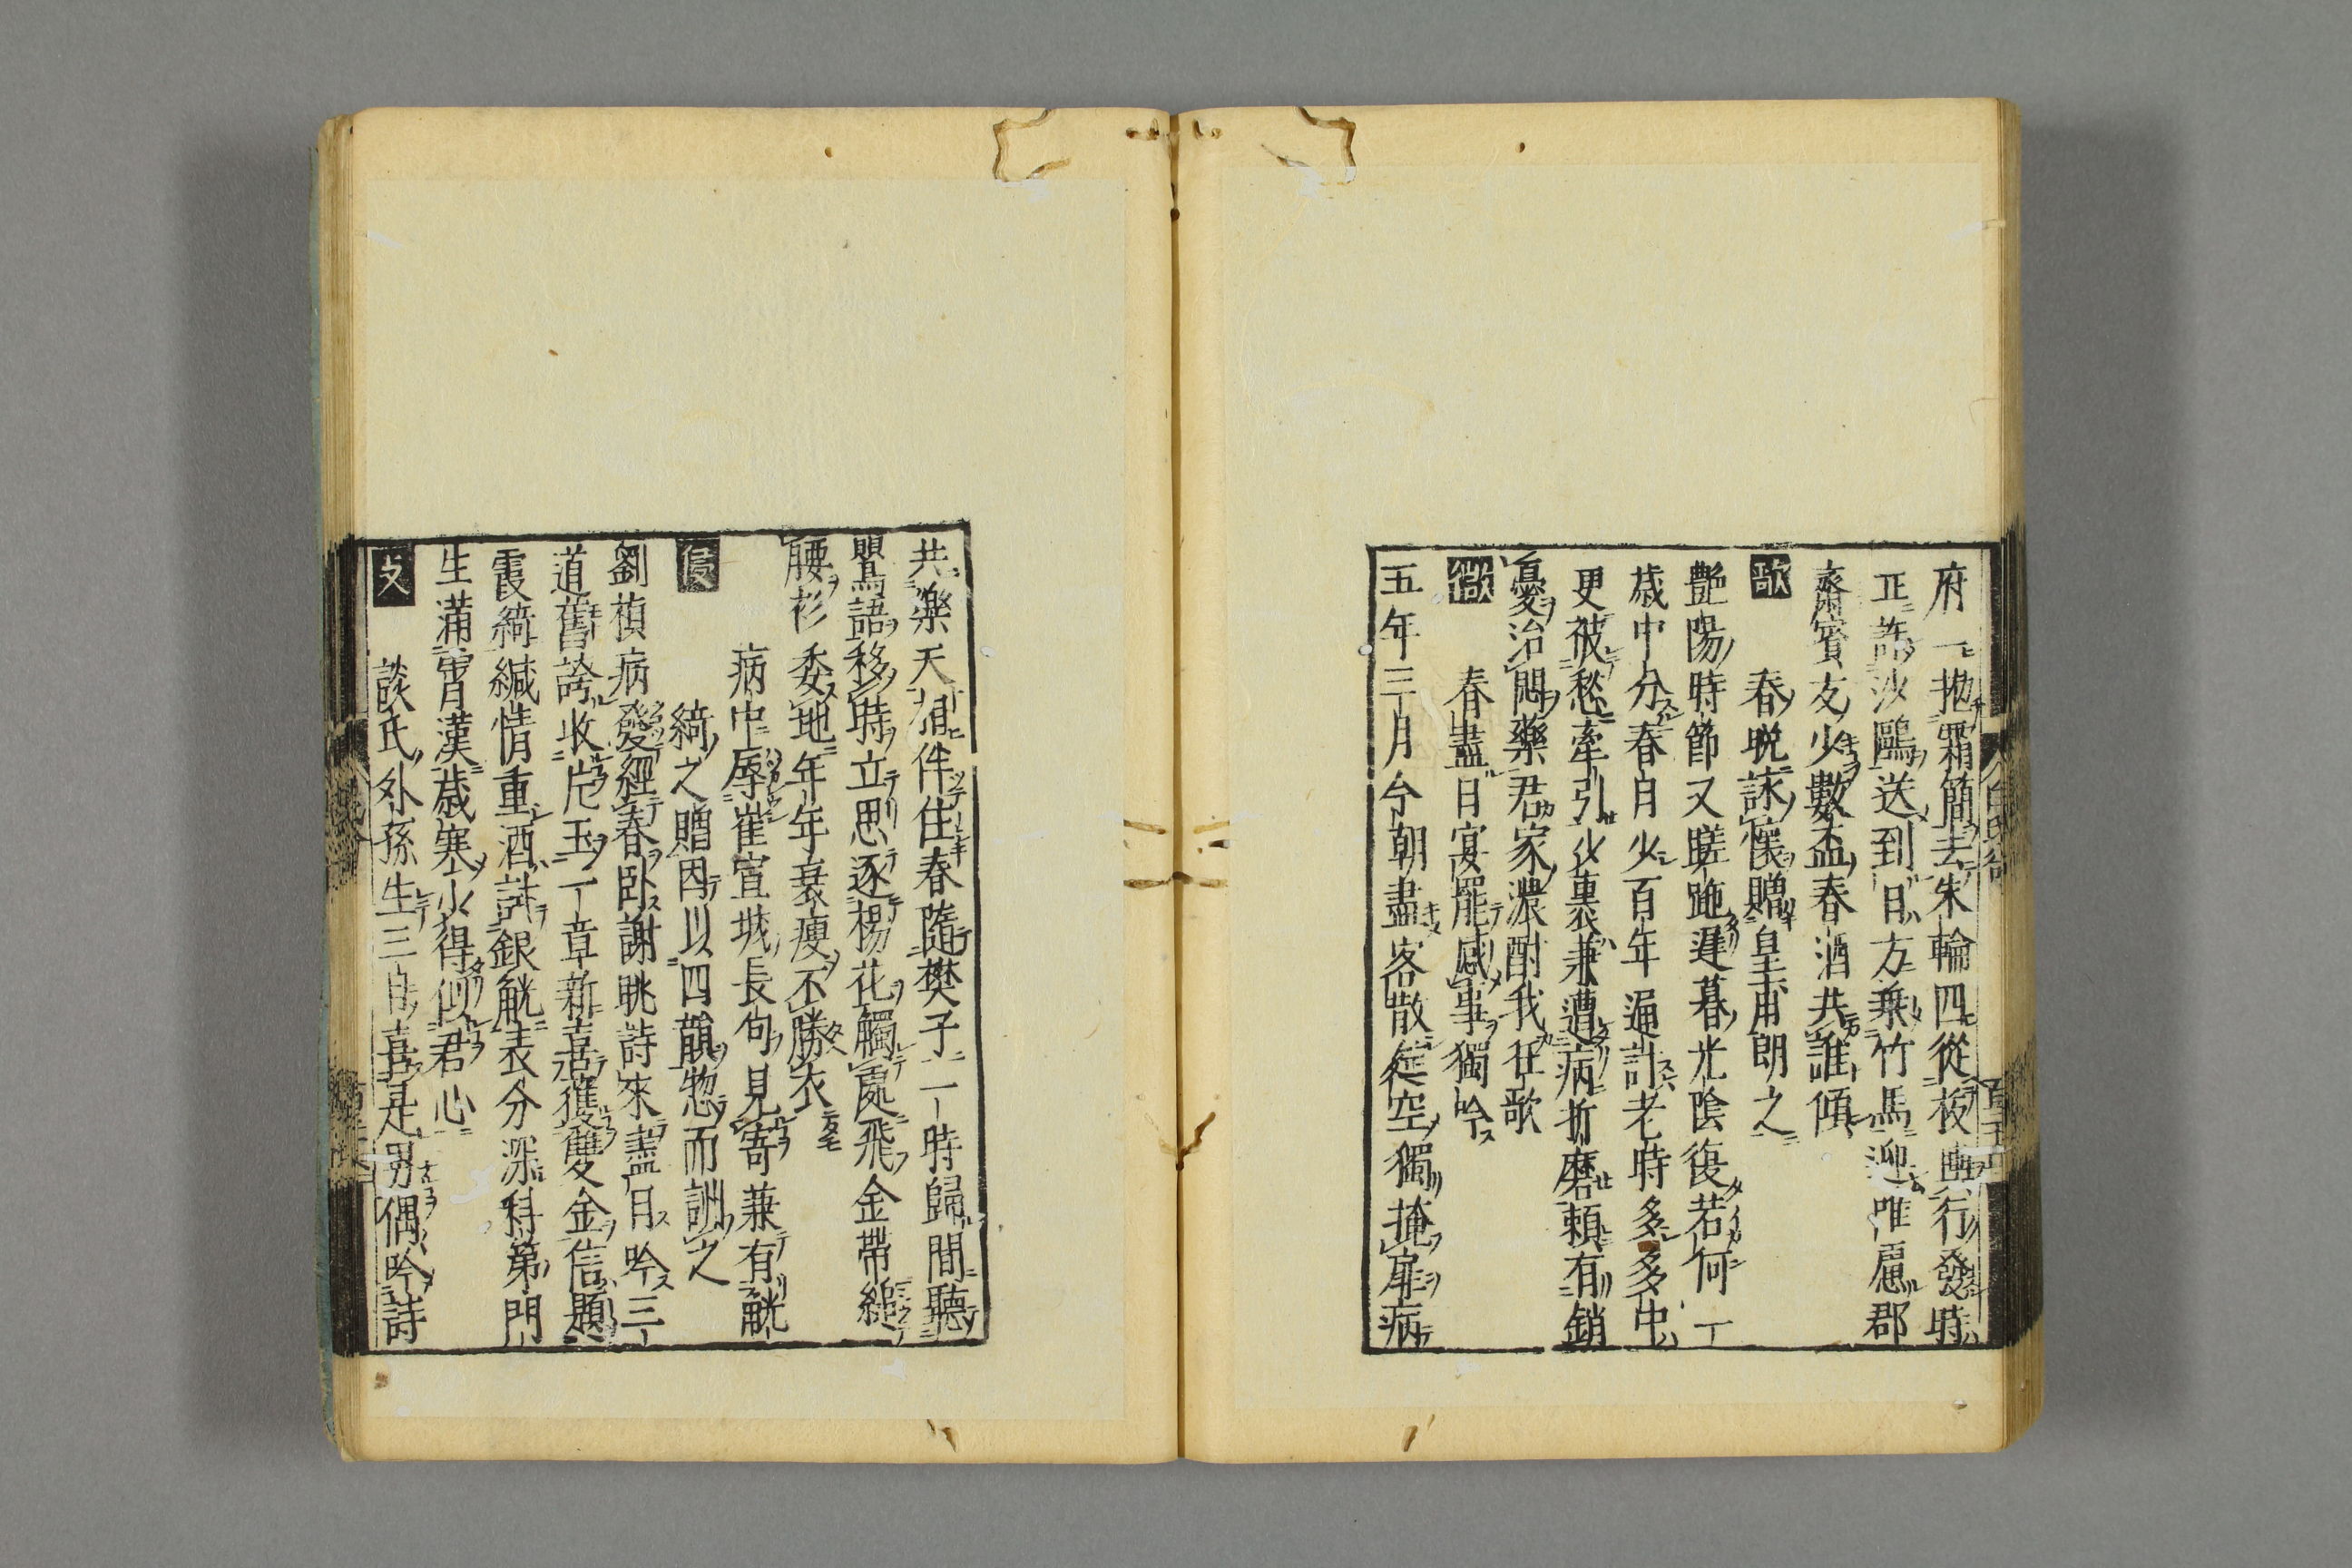 府一抛霜簡去朱輪四從板輿行發時
正許沙鷗送到日方乘竹馬迎唯慮郡
齋賓友少數盃春酒共誰傾
歌 春晩詠懷贈皇甫朗之
艶陽時節又蹉跎遲暮光陰復若何一
歲中分春日少百年通計老時多多中
更被愁牽引少裏兼遭病折磨頼有銷
憂治悶藥君家濃酎我狂歌
微 春盡日宴罷感事獨吟
五年三月今朝盡客散筵空獨掩扉病
共樂天相伴住春隨樊子一時歸間聽
鸎語移時立思逐楊花觸處飛金帶縋
腰衫委地年年衰痩不勝衣
侵 病中辱崔宣城長句見寄兼有觥
綺之贈因以四韻惣而詶之
劉楨病發經春臥謝眺詩來盡日吟三
道舊誇收片玉一章新喜獲雙金信題
霞綺緘情重酒試銀觥表分深科第門
生滿霄漢歲寒少得似君心
支 談氏外孫生三日喜是男偶吟詩